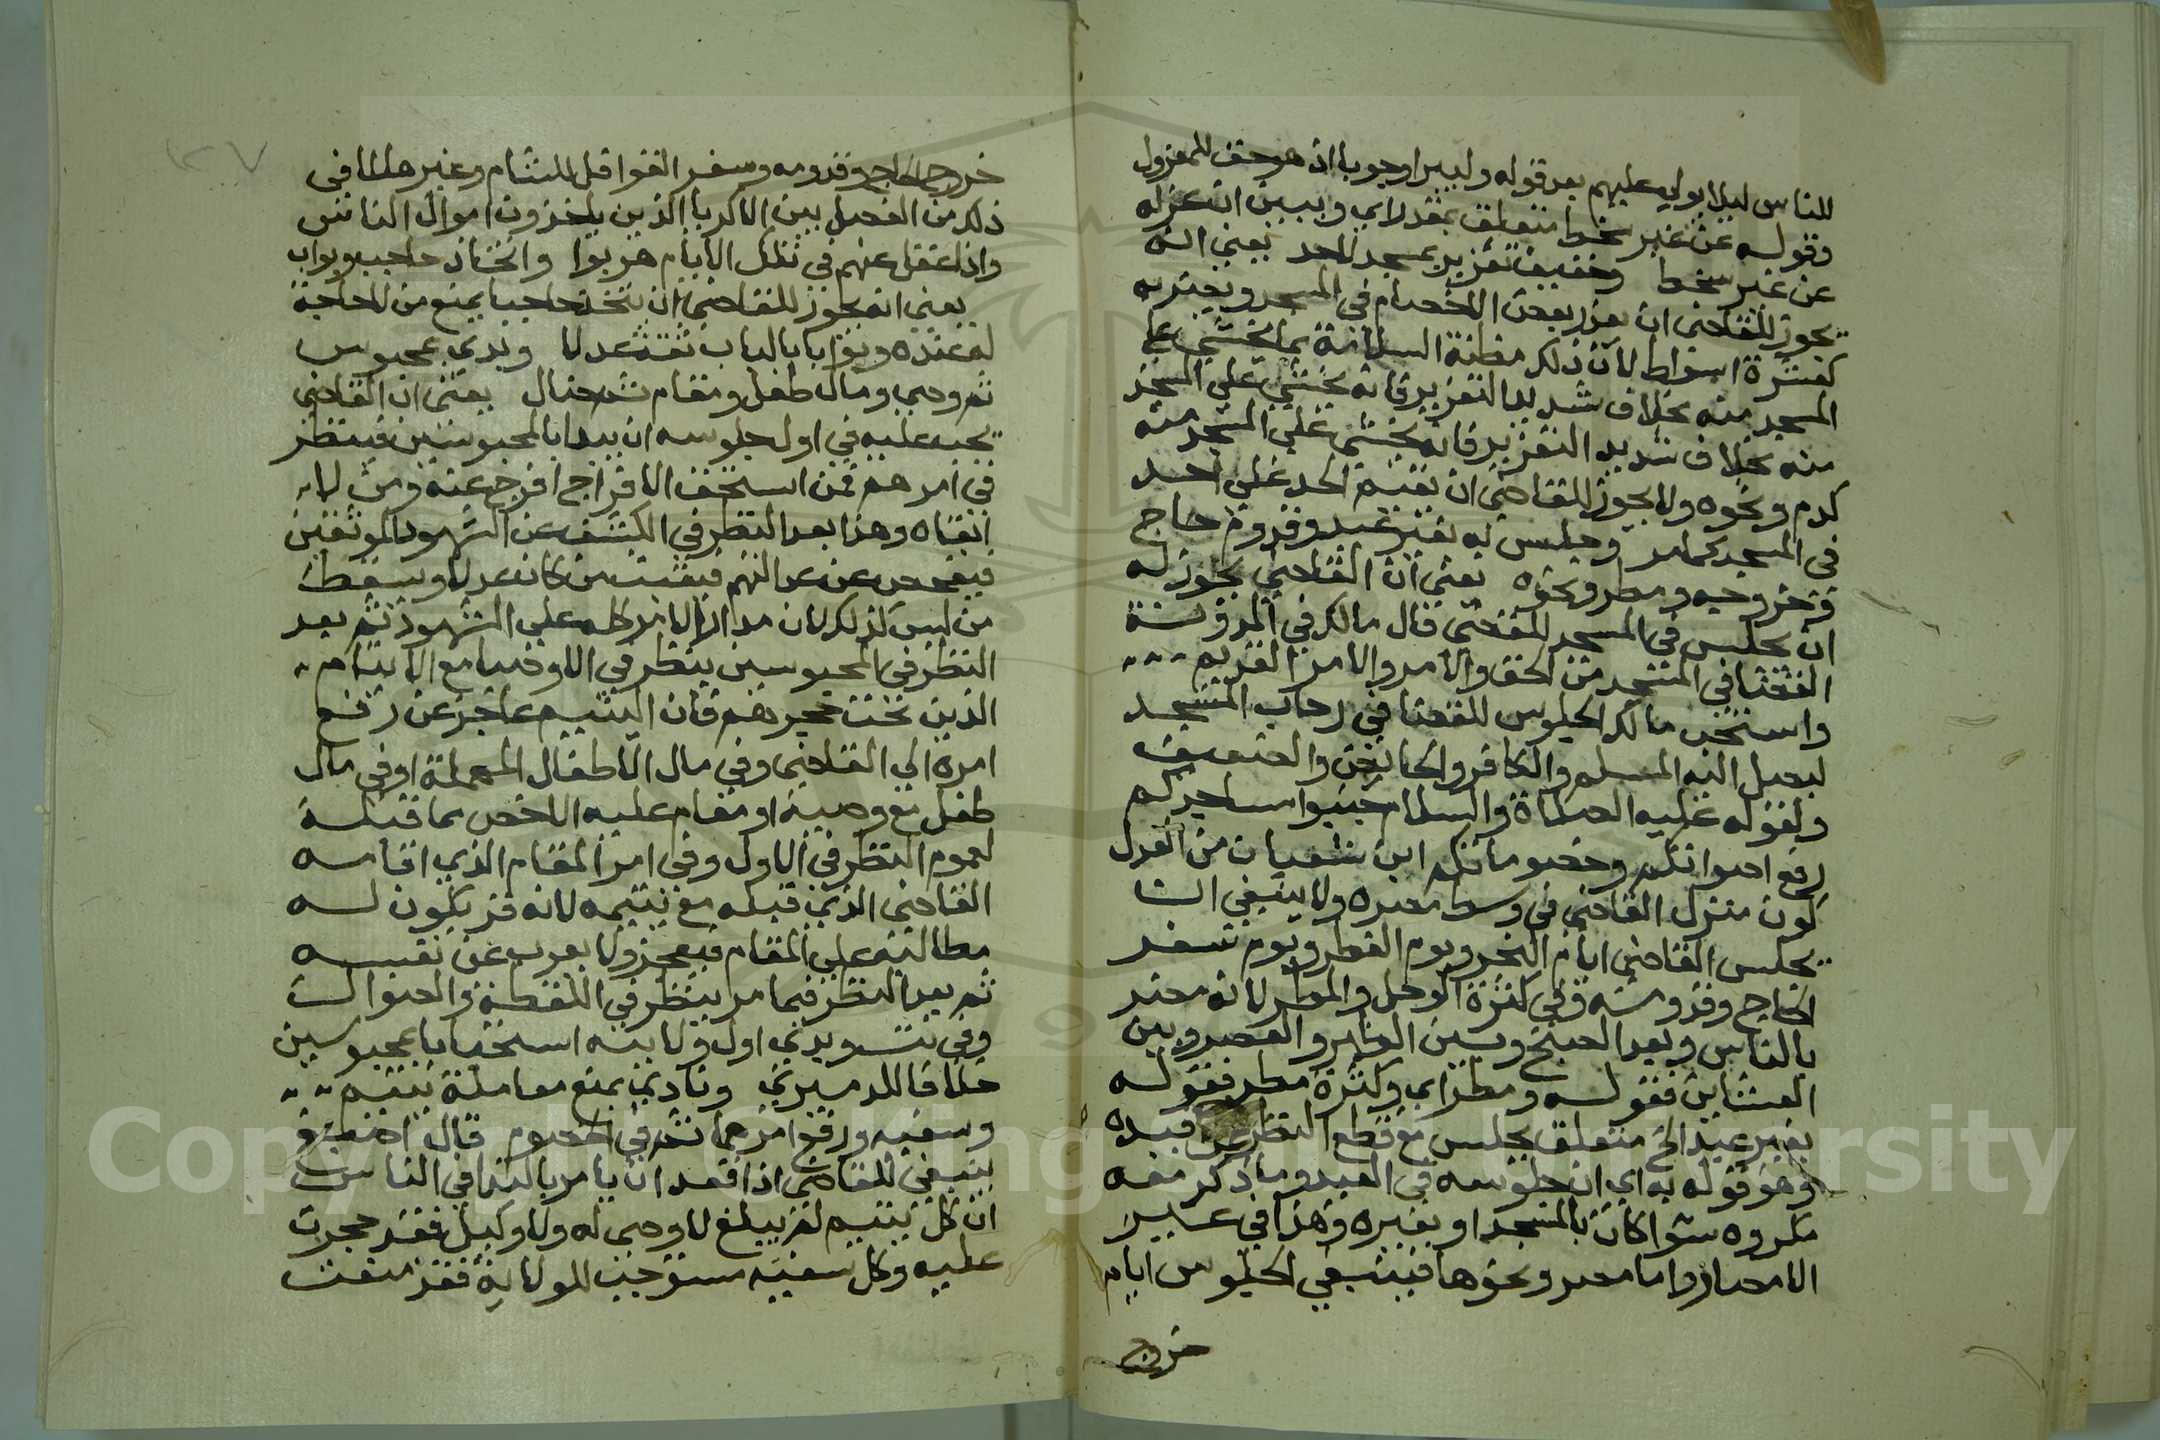 للناس ليلا يولي عليهم بعد قوله وليبرا وجوبا اذ هو حق للمعزول
وقوله عن غير سخط متعلق بمقدر اي ويبين ان عزله
عن غير سخط وخفيف تعزير بمسجد لا حد يعني انه
يجوز للقاضي ان يعزر بعض الاخصام في المسجد ويضربه
كعشرة اسواط لان ذلك مظنة السلامة مما يخشي علي
المسجد منه بخلاف شديد التعزير فانه يخشي علي المسجد
منه بخلاف شديد التعزير فانه يخشي علي المسجد منه
كدم ونحوه ولا يجوز للقاضي ان يقيم الحد علي احد
في المسجد كما مر وجلس به بغير عيد وقدوم حاج
وخروجه ومطر ونحوه يعني ان القاضي يجوز له
ان يجلس في المسجد للقضي قال مالك في المدونة
القضا في المسجد من الحق والامر والامر القديم
واستحب مالك الجلوس للقضا في رحاب المسجد
ليصل اليه المسلم والكافر والحايض والضعيف
ولقوله عليه الصلاة والسلام جنبوا مساجدكم
رفع اصواتكم وخصوماتكم ابن شعبان من العدل
كون منزل القاضي في وسط مصره ولا ينبغي ان
يجلس القاضي ايام النحر ويوم الفطر ويوم سفر
الحاج وقدومه وفي كثرة الوحل والمطر لانه مضر
بالناس وبعد الصبح وبين الظهر والعصر وبين
العشاين فقوله ومطر اي وكثرة مطر فقوله
بغير عيد الخ متعلق بجلس مع قطع النظر عن قيده
وهو قوله به اي ان جلوسه في العيد وما ذكر معه
مكروه سوا كان بالمسجد او بغيره وهذا في غير
الامصار واما مصر ونحوها فينبغي الجلوس ايام
خروج
خروج الحاج وقدومه وسفر القوافل للشام وغيرها لما في
ذلك من الفصل بين الاكريا الذين ياخذون اموال الناس
واذا غفل عنهم في تلك الايام هربوا واتخاذ حاجب وبواب
يعني انه يجوز للقاضي ان يتخذ حاجبا يمنع من لا حاجة
له عنده وبوابا بالباب ثقة عدلا وبدي بمحبوس
ثم وصي ومال طفل ومقام ثم ضال يعني ان القاضي
يجب عليه في اول جلوسه ان يبدا بالمحبوسين فينظر
في امرهم فمن استحق الافراج افرج عنه ومن لا
ابقاه وهذا بعد النظر في الكشف عن الشهود الموثقين
فيفحص عن عدالتهم فيثبت من كان عدلا ويسقط
من ليس كذلك لان مدار الامر كله علي الشهود ثم بعد
النظر في المحبوسين ينظر في الاوصيا مع الايتام
الذين تحت حجرهم فان اليتيم عاجز عن رفع
امره الي القاضي وفي مال الاطفال المهملة او في مال
طفل مع وصيه او مقام عليه الاخص مما قبله
لعموم النظر في الاول وفي امر المقام الذي اقامه
القاضي الذي قبله مع يتيمه لانه قد يكون له
مطالبة علي المقام فيعجز ولا يعرب عن نفسه
ثم بعد النظر فيما مر ينظر في اللقطة والضوال
وفي تسويد بدي اول ولايته استحبابا بمحبوسين
خلافا للدميري ونادي بمنع معاملة يتيم
وسفيه ورفع امرهما ثم في الخصوم قال اصبغ
ينبغي للقاضي اذا قعد ان يامر بالندا في الناس
ان كل يتيم لم يبلغ لا وصي له ولا وكيل فقد حجرت
عليه وكل سفيه مستوجب للولاية فقد منعت
Copyright © King Saud University